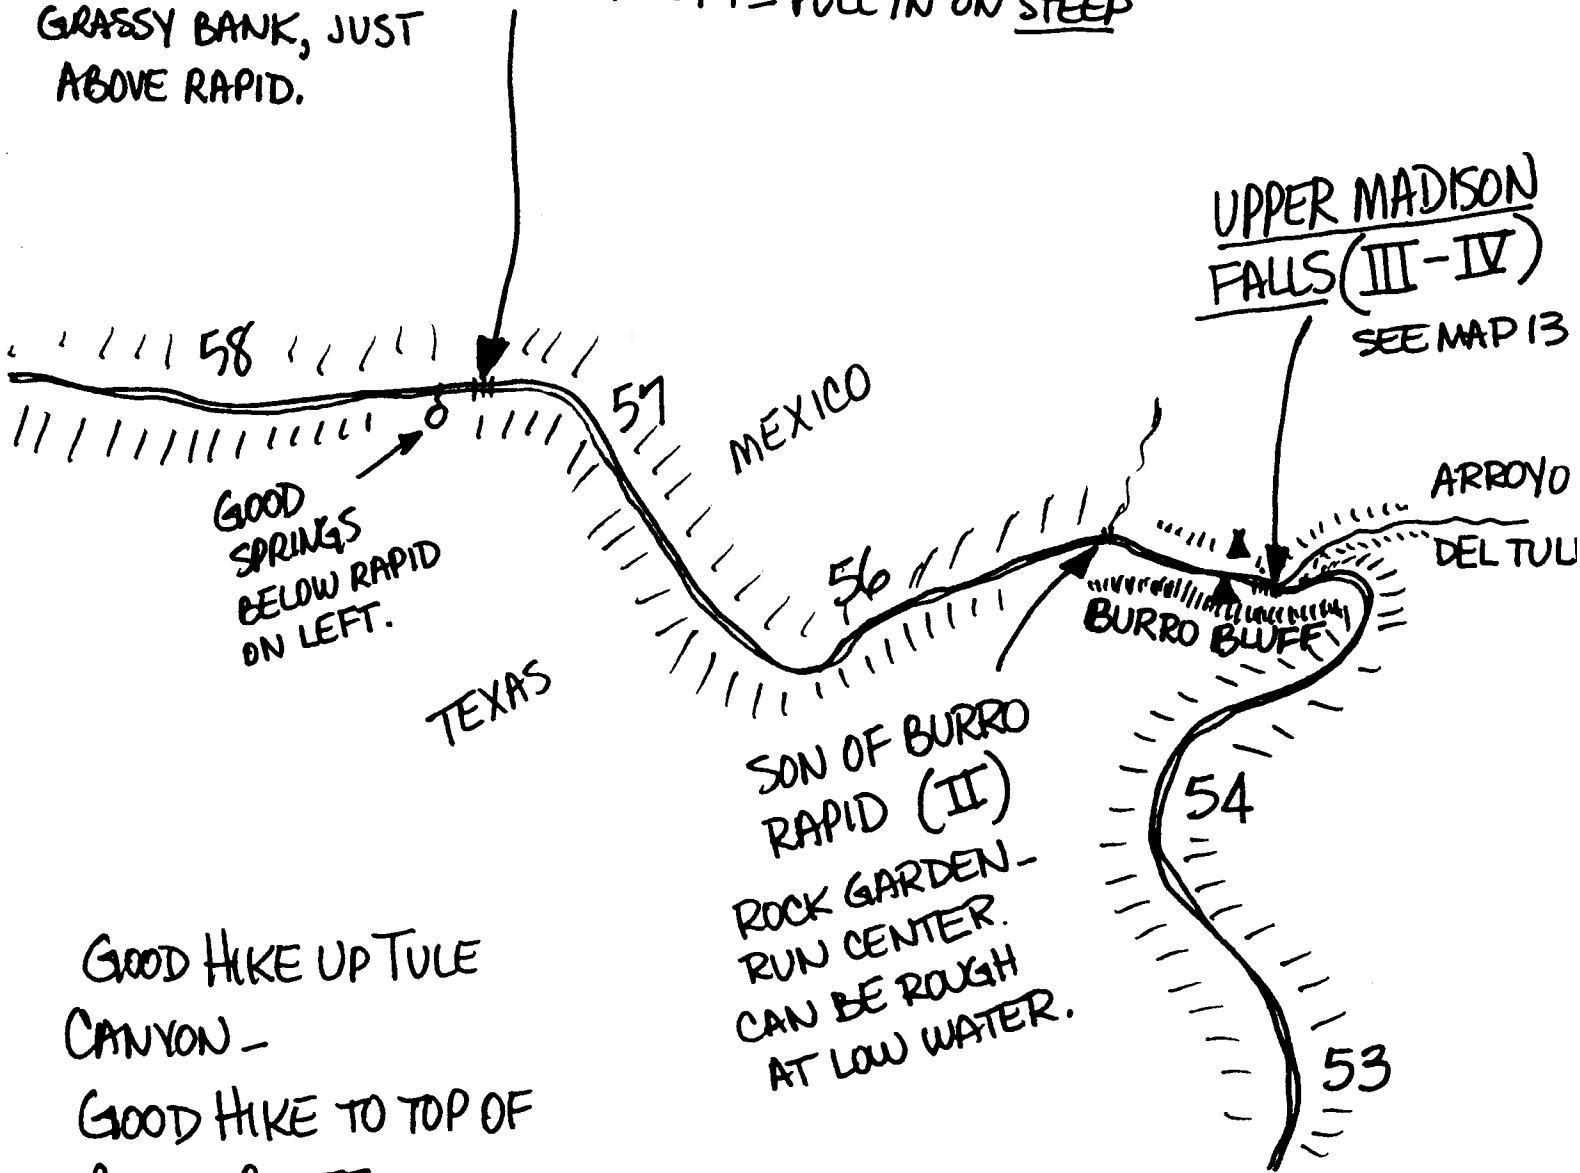 PULL IN ON STEEP
GRASSY BANK, JUST
ABOVE RAPID.
UPPER MADISON
FALLS (III-IV)
SEE MAP 13
58
57
MEXICO
ARROYO
DEL TULE
GOOD
SPRINGS
BELOW RAPID
ON LEFT.
56
BURRO BLUFF
TEXAS
SON OF BURRO
RAPID (II)
ROCK GARDEN-
RUN CENTER.
CAN BE ROUGH
AT LOW WATER.
54
53
GOOD HIKE UP TULE
CANYON-
GOOD HIKE TO TOP OF